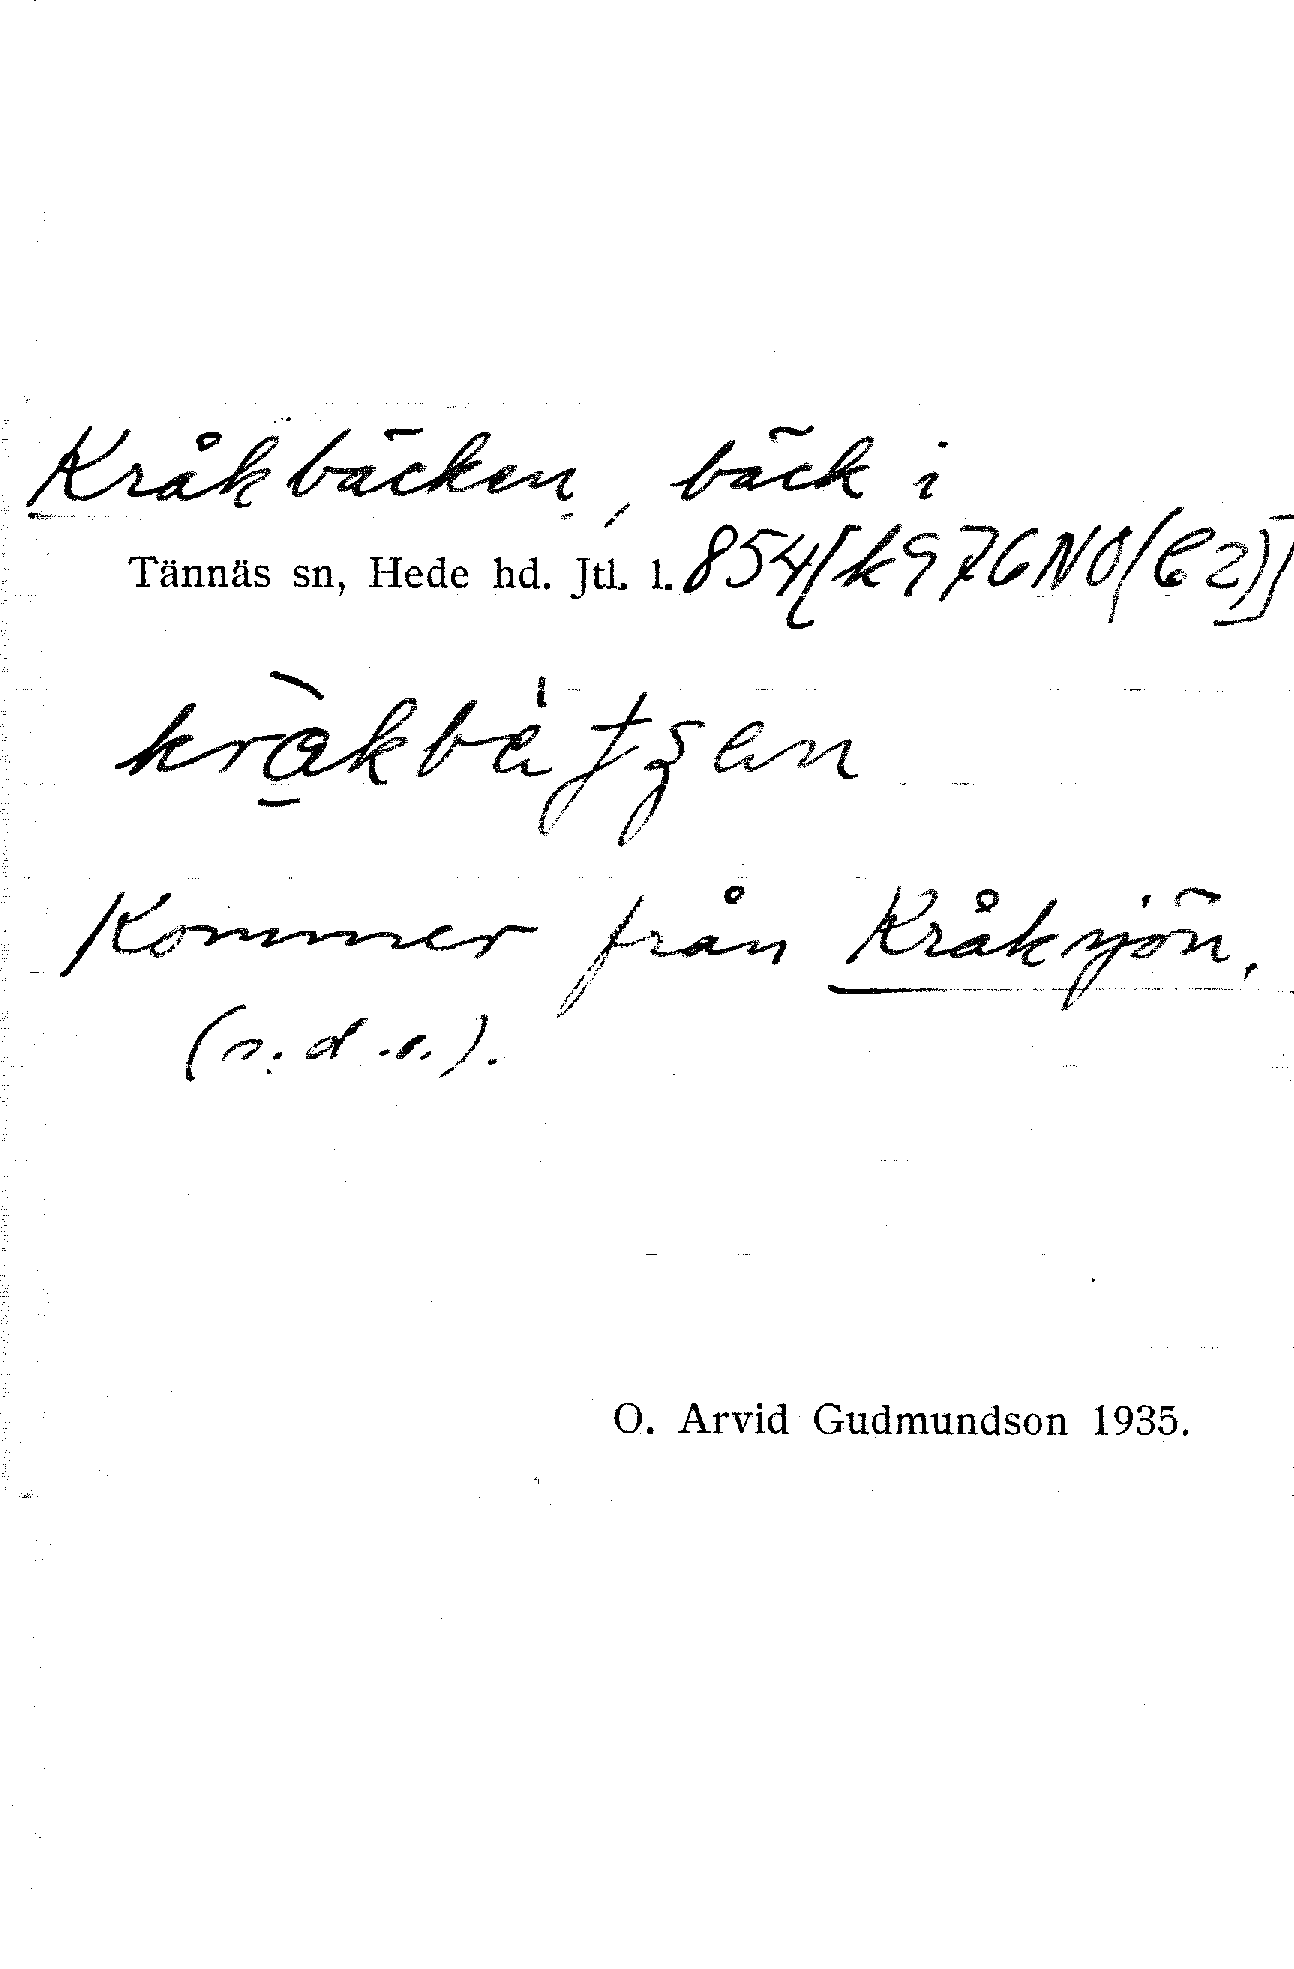 Kråkbäcken, bäck i
Tännäs sn, Hede hd. Jtl. l. 854[k976NO(C2)]
Kommer från Kråksjön.
(s.d.o.).
O. Arvid Gudmundson 1935.